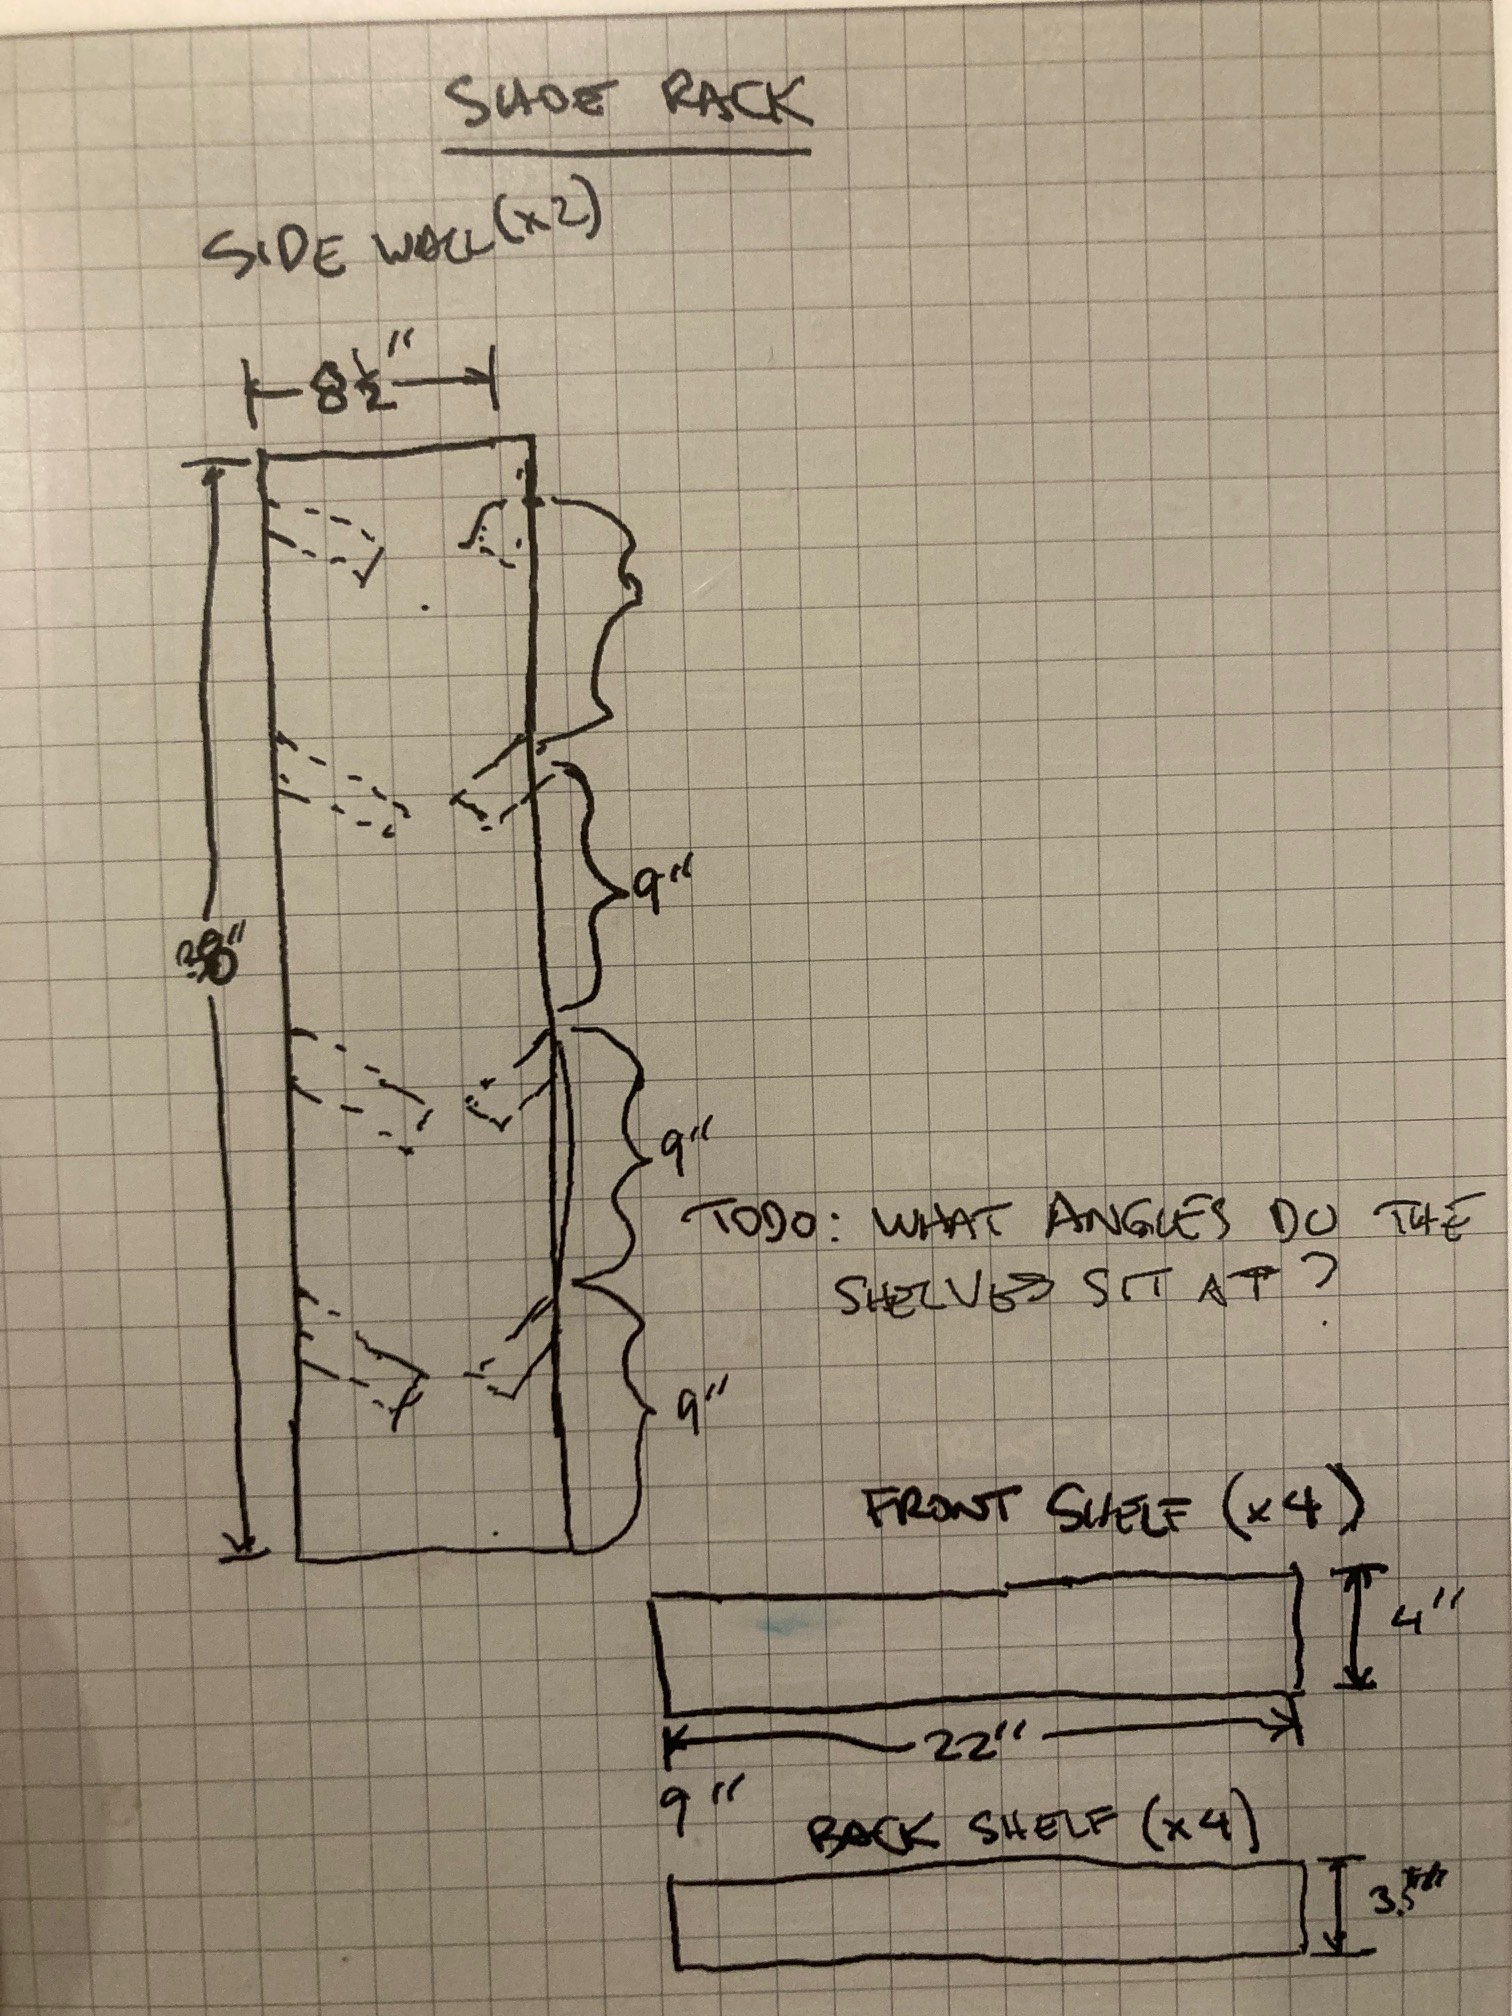 SHOE RACK
SIDE WALL (x2)
8 1/2"
9"
9"
TODO: WHAT ANGLES DO THE
SHELVES SIT AT?
9"
FRONT SHELF (x4)
4"
22"
9"
BACK SHELF (x4)